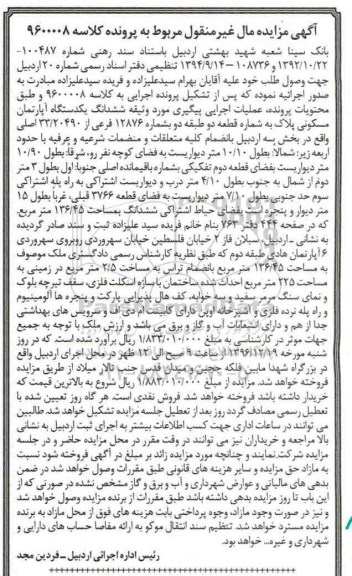 آگهی مزایده مال غیرمنقول مربوط به پرونده کلاسه ۹۶۰۰۰۰۸
بانک سینا شعبه شهید بهشتی اردبیل باستناد سند رهنی شماره ۱۰۰۴۸۷-
۱۳۹۲/۱۰/۲۲ و ۱۰۸۷۳۶ – ۱۳۹۴/۹/۱۴ تنظیمی دفتر اسناد رسمی شماره ۲۰ اردبیل
جهت وصول طلب خود علیه آقایان بهرام سیدعلیزاده و فریده سیدعلیزاده مبادرت به
صدور اجرائیه نموده که پس از تشکیل پرونده اجرایی به کلاسه ۹۶۰۰۰۰۸ و طبق
محتویات پرونده، عملیات اجرایی پیگیری مورد وثیقه ششدانگ یکدستگاه آپارتمان
مسکونی پلاک به شماره قطعه دو طبقه دو بشماره ۱۲۸۷۶ فرعی از ۳۳/۲۰۴۹۰ اصلی
واقع در بخش سه اردبیل بانضمام کلیه متعلقات و منضمات شرعیه و عرفیه با حدود
اربعه زیر: شمالا: بطول ۱۰/۱۰ متر دیواریست به فضای کوچه نفر رو، شرقا: بطول ۱۰/۹۰
متر دیواریست بفضای قطعه دوم تفکیکی بشماره باقیمانده اصلی جنوبا: اول بطول ۳ متر
دوم از شمال به جنوب بطول ۴/۱۰ متر درب و دیواریست اشتراکی به راه پله اشتراکی
سوم حد جنوبی بطول ۷/۱۰ متر دیواریست به فضای قطعه ۳۷۶۶ قبلی، غربا بطول ۱۵
متر دیوار و پنجره ایست بفضای حیاط اشتراکی ششدانگ بمساحت ۱۳۶/۴۵ متر مربع.
که در صفحه ۴۴۴ دفتر ۷۶۳ بنام خانم فریده سید علیزاده ثبت و سند صادر گردیده
به نشانی - اردبیل، سبلان فاز ۲ خیابان فلسطین خیابان سهروردی روبروی سهروردی
۶ آپارتمان هادی طبقه دوم که طبق نظریه کارشناس رسمی دادگستری ملک موصوف
به مساحت ۱۳۶/۴۵ متر مربع بانضمام تراس به مساحت ۲/۵ متر مربع در زمینی به
مساحت ۲۲۵ متر مربع احداث شده ساختمان با سازه اسکلت فلزی، سقف تیرچه بلوک
و نمای سنگ مرمر سفید و سه خوابه، کف هال پذیرایی پارکت و پنجره ها آلومینیوم
و راه پله نرده فلزی و آشپزخانه اوپن دارای کابینت ام دی اف و سرویس های بهداشتی
جدا از هم و دارای انشعابات آب و گاز و برق می باشد و ارزش ملک با توجه به جمیع
جهات موثر در کارشناسی به مبلغ ۱/۸۳۳/۰۱۰/۰۰۰ ریال برآورد شده است. که در روز
شنبه مورخه ۱۳۹۶/۱۲/۱۹ از ساعت ۹ صبح الی ۱۲ ظهر در محل اجرای اردبیل واقع
در بزرگراه شهدا مابین فلکه ججین و میدان قدس جنب تالار میلاد از طریق مزایده
فروخته خواهد شد. مزایده از مبلغ ۱/۸۸۳/۰۱۰/۰۰۰ ریال شروع به بالاترین قیمت که
خریدار داشته باشد فروخته خواهد شد. فروش نقدی است. هر گاه روز تعیین شده با
تعطیل رسمی مصادف گردد روز بعد از تعطیل جلسه مزایده تشکیل خواهد شد. طالبین
می توانند در ساعات اداری جهت کسب اطلاعات بیشتر به اجرای ثبت اردبیل به نشانی
بالا مراجعه و خریداران نیز می توانند در وقت مقرر در محل مزایده حاضر و در جلسه
مزایده شرکت نمایند و چنانچه مورد مزایده زائد بر مبلغ در آگهی فروخته شود نسبت
به مازاد حق مزایده و سایر هزینه های قانونی طبق مقررات وصول خواهد شد در ضمن
بدهی های مالیاتی و عوارض شهرداری و آب و برق و گاز مشخص نشده در صورتی که از
این باب تا روز مزایده بدهی داشته باشد طبق مقررات از برنده مزایده وصول خواهد شد
و نیز در صورت وجود مازاد، وجوه پرداختی بابت هزینه های فوق از محل مازاد به برنده
مزایده مسترد خواهد شد. تنظیم سند انتقال موکول به ارائه مفاصا حساب های دارایی و
شهرداری و غیره... خواهد بود.
رئیس اداره اجرائی اردبیل - فردین مجد